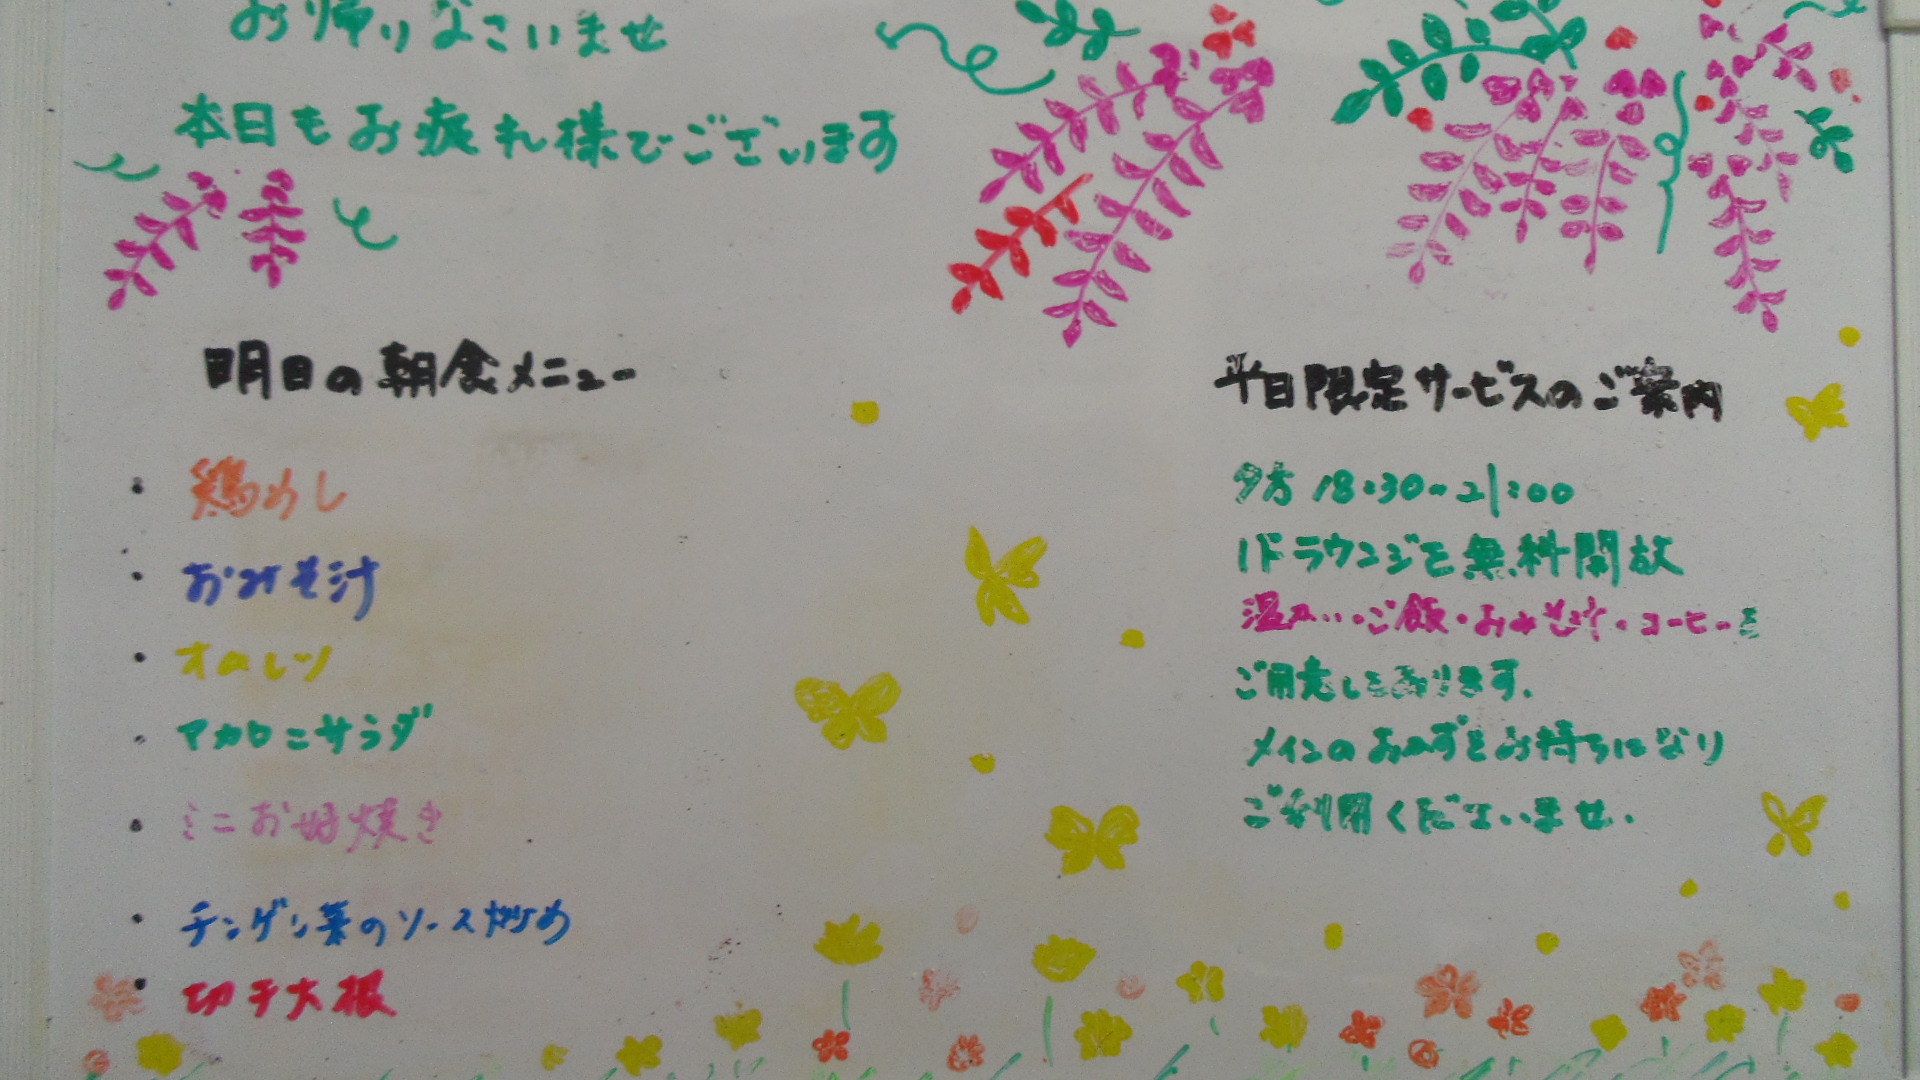 お帰りなさいませ
本日もお疲れ様でございます
明日の朝食メニュー
・鶏めし
・おみそ汁
・オムレツ
・マカロニサラダ
・ミニお好焼き
・チンゲン菜のソース炒め
・切干大根
平日限定サービスのご案内
夕方 18:30~21:00
1Fラウンジを無料開放
温かいご飯・おみそ汁・コーヒーを
ご用意しております。
メインのおかずをお持ちになり
ご利用くださいませ.